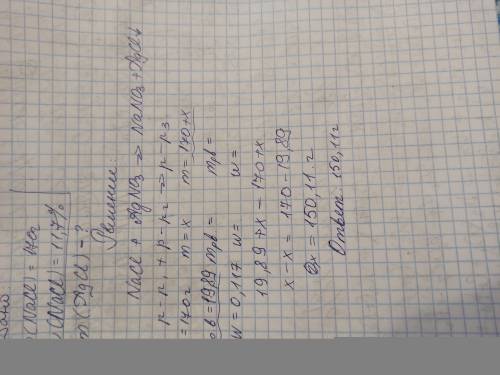 Дано
(NaCl) = 170г
(NaCl) = 11,7%
m(AgCl) - ?
Решение:
NaCl + AgNO₃ → NaNO₃ + AgCl↓
р-р₁ + р-р₂ → р-р₃
= 170г m = x m = 170+x
рв = 19,89 mрв = mрв =
W = 0,117 W = W =
19,89 + x = 170 + x
x - x = 170 - 19,89
x = 150,11 г
Ответ: 150,11 г